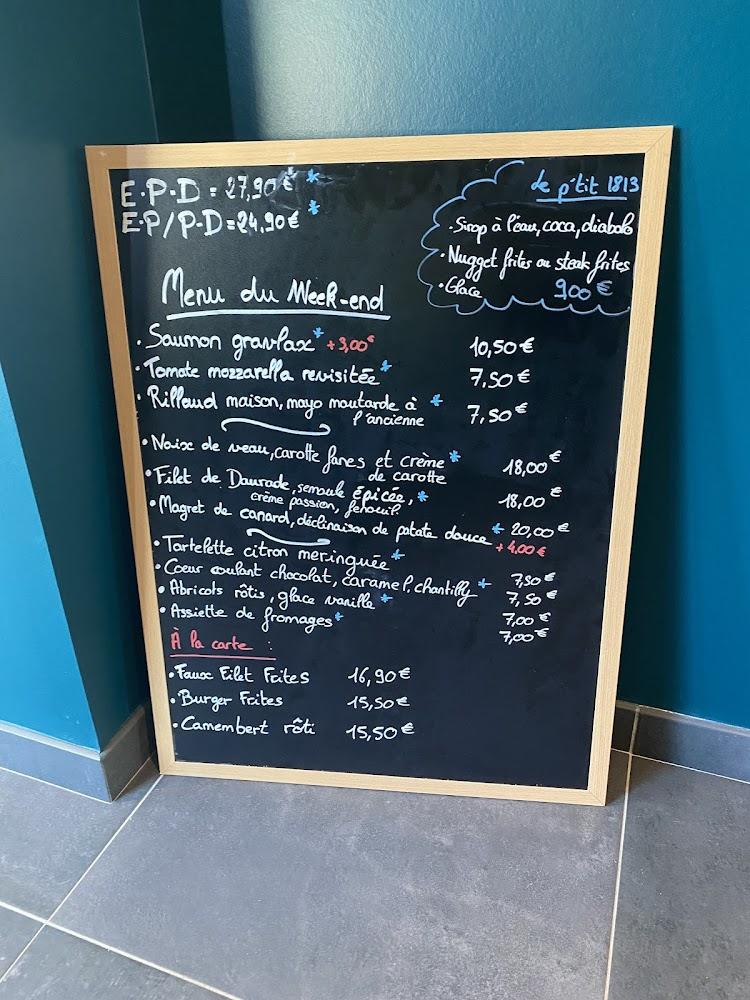 E.P.D = 27,90 € *
E.P/P.D = 24,90 € *
Le p'tit 1813
• Sirop à l'eau, coca, diabolo
• Nugget frites ou steak frites
• Glace 9,00 €
Menu du Week-end
• Saumon gravlax * + 3,00€ 10,50 €
• Tomate mozzarella revisitée * 7,50 €
• Rillaud maison, mayo moutarde à * 7,50 €
l'ancienne
• Noix de veau, carotte fanes et crème * 18,00 €
de carotte
• Filet de Daurade, semoule épicée, * 18,00 €
crème passion, fenouil
• Magret de canard, déclinaison de patate douce * 20,00 €
+ 4,00 €
• Tartelette citron meringuée * 7,50 €
• Coeur coulant chocolat, caramel, chantilly * 7,50 €
• Abricots rôtis, glace vanille * 7,00 €
• Assiette de fromages * 7,00 €
À la carte :
• Faux Filet Frites 16,90 €
• Burger Frites 15,50 €
• Camembert rôti 15,50 €